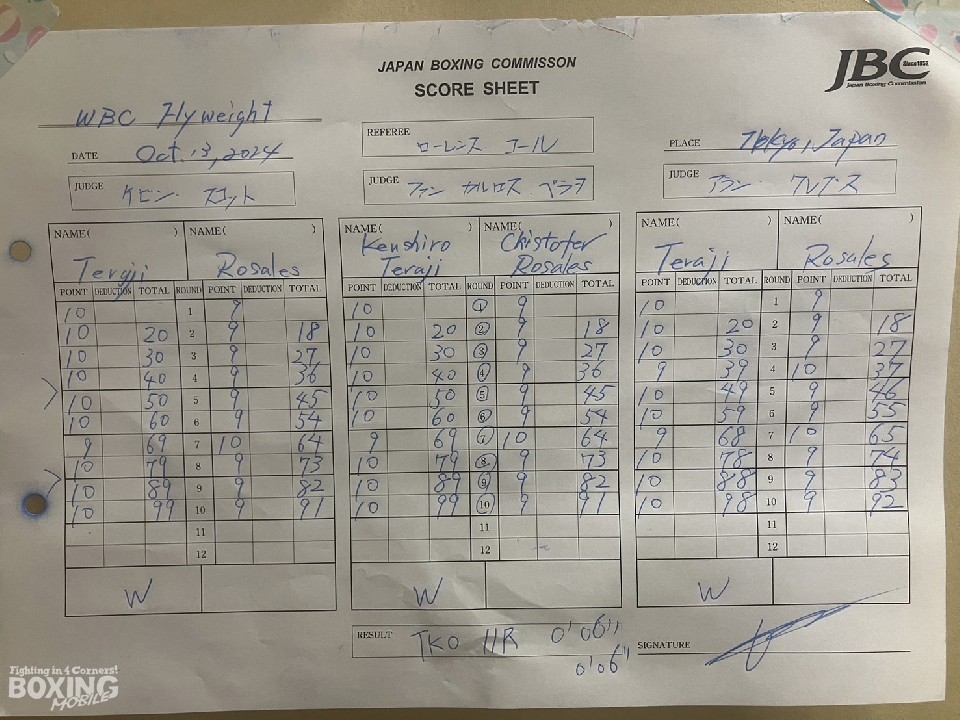 JAPAN BOXING COMMISSON
SCORE SHEET
JBC Since1952
Japan Boxing Commission
WBC Flyweight
DATE Oct. 13, 2024
REFEREE ローレンス コール
PLACE Tokyo, Japan
JUDGE ケビン・スコット
JUDGE ファン カルロス ペラヨ
JUDGE アラン・
NAME( ) NAME( ) NAME( ) NAME( ) NAME( ) NAME( )
Teraji Rosales Kenshiro Teraji Chistofer Rosales Teraji Rosales
POINT DEDUCTION TOTAL ROUND POINT DEDUCTION TOTAL POINT DEDUCTION TOTAL ROUND POINT DEDUCTION TOTAL POINT DEDUCTION TOTAL ROUND POINT DEDUCTION TOTAL
10 1 9 10 1 9 10 1 9
10 20 2 9 18 10 20 2 9 18 10 20 2 9 18
10 30 3 9 27 10 30 3 9 27 10 30 3 9 27
10 40 4 9 36 10 40 4 9 36 9 39 4 10 37
10 50 5 9 45 10 50 5 9 45 10 49 5 9 46
10 60 6 9 54 10 60 6 9 54 10 59 6 9 55
9 69 7 10 64 9 69 7 10 64 9 68 7 10 65
10 79 8 9 73 10 79 8 9 73 10 78 8 9 74
10 89 9 9 82 10 89 9 9 82 10 88 9 9 83
10 99 10 9 91 10 99 10 9 91 10 98 10 9 92
11 11 11
12 12 12
W W W
RESULT TKO 11R 0'06"
0'06"
SIGNATURE
Fighting in 4 Corners!
BOXING
MOBILE